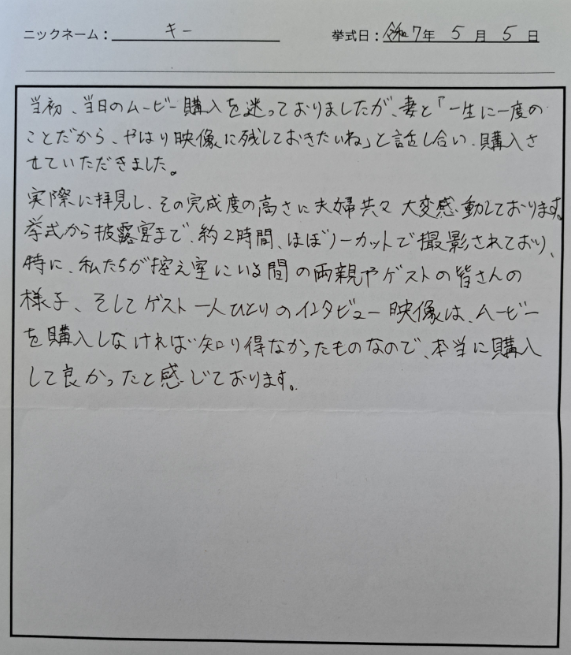 ニックネーム： キー 挙式日：令和7年 5月 5日
当初、当日のムービー購入を迷っておりましたが、妻と「一生に一度の
ことだから、やはり映像に残しておきたいね」と話し合い、購入さ
せていただきました。
実際に拝見し、その完成度の高さに夫婦共々大変感動しております。
挙式から披露宴まで、約2時間、ほぼノーカットで撮影されており、
特に、私たちが控え室にいる間の両親やゲストの皆さんの
様子、そしてゲスト一人ひとりのインタビュー映像は、ムービー
を購入しなければ知り得なかったものなので、本当に購入
して良かったと感じております。